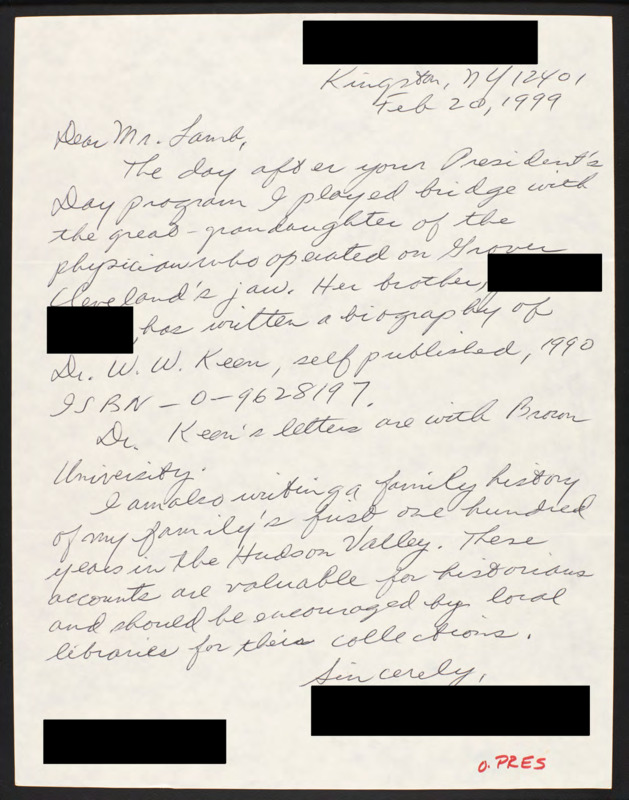 Kingston, NY 12401
Feb 20, 1999
Dear Mr. Lamb,
The day after your President's
Day program I played bridge with
the great-grandaughter of the
physician who operated on Grover
Cleveland's jaw. Her brother,
has written a biography of
Dr. W. W. Keen, self published, 1990
ISBN - 0-9628197.
Dr. Keen's letters are with Brown
University.
I am also writing a family history
of my family's first one hundred
years in the Hudson Valley. These
accounts are valuable for historians
and should be encouraged by local
libraries for their collections.
Sincerely,
O. PRES